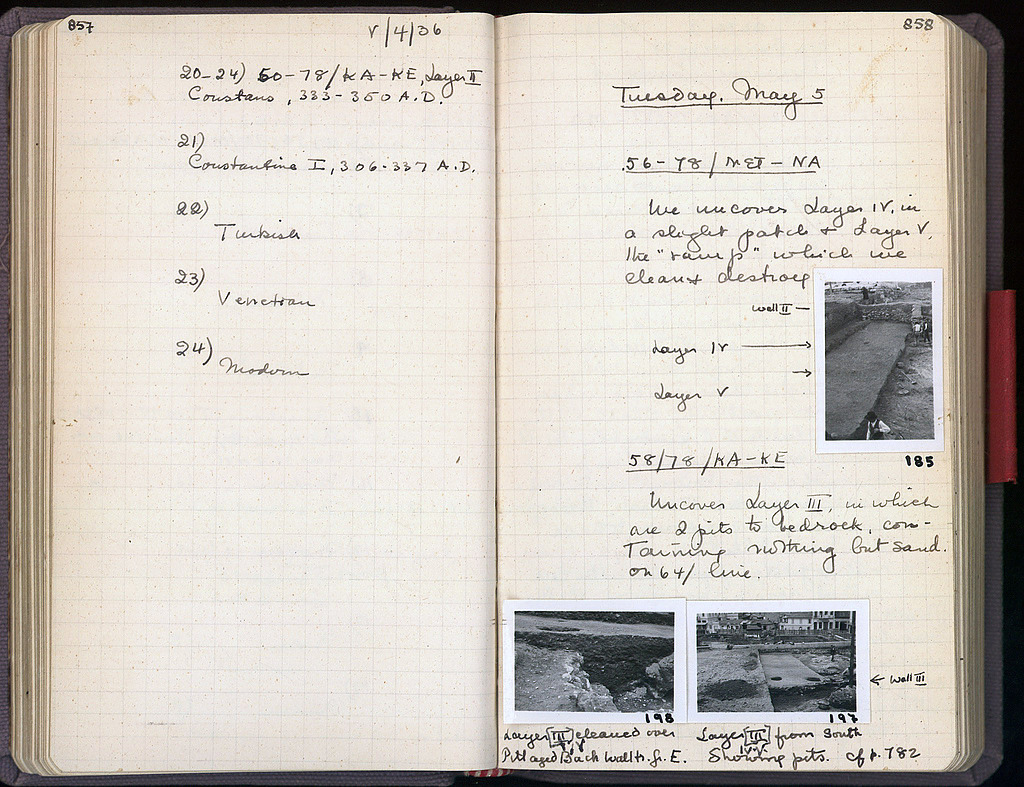 857
V/4/36
20-24) 50-78/KA-KE, Layer II
Constans, 333-350 A.D.
21)
Constantine I, 306-337 A.D.
22)
Turkish
23)
Venetian
24)
Modern
858
Tuesday. May 5
56-78/MET-NA
We uncover Layer IV, in
a slight patch & Layer V,
the "ramp" which we
clean & destroy
Wall II
Layer IV
Layer V
185
58/78/KA-KE
Uncover Layer III, in which
are 2 pits to bedrock, con-
taining nothing but sand.
on 64/ line.
198
197
Wall III
Layer [III] cleaned over
V
Back wall
Layer [III] from South
IV-V
Showing pits. cf p. 782